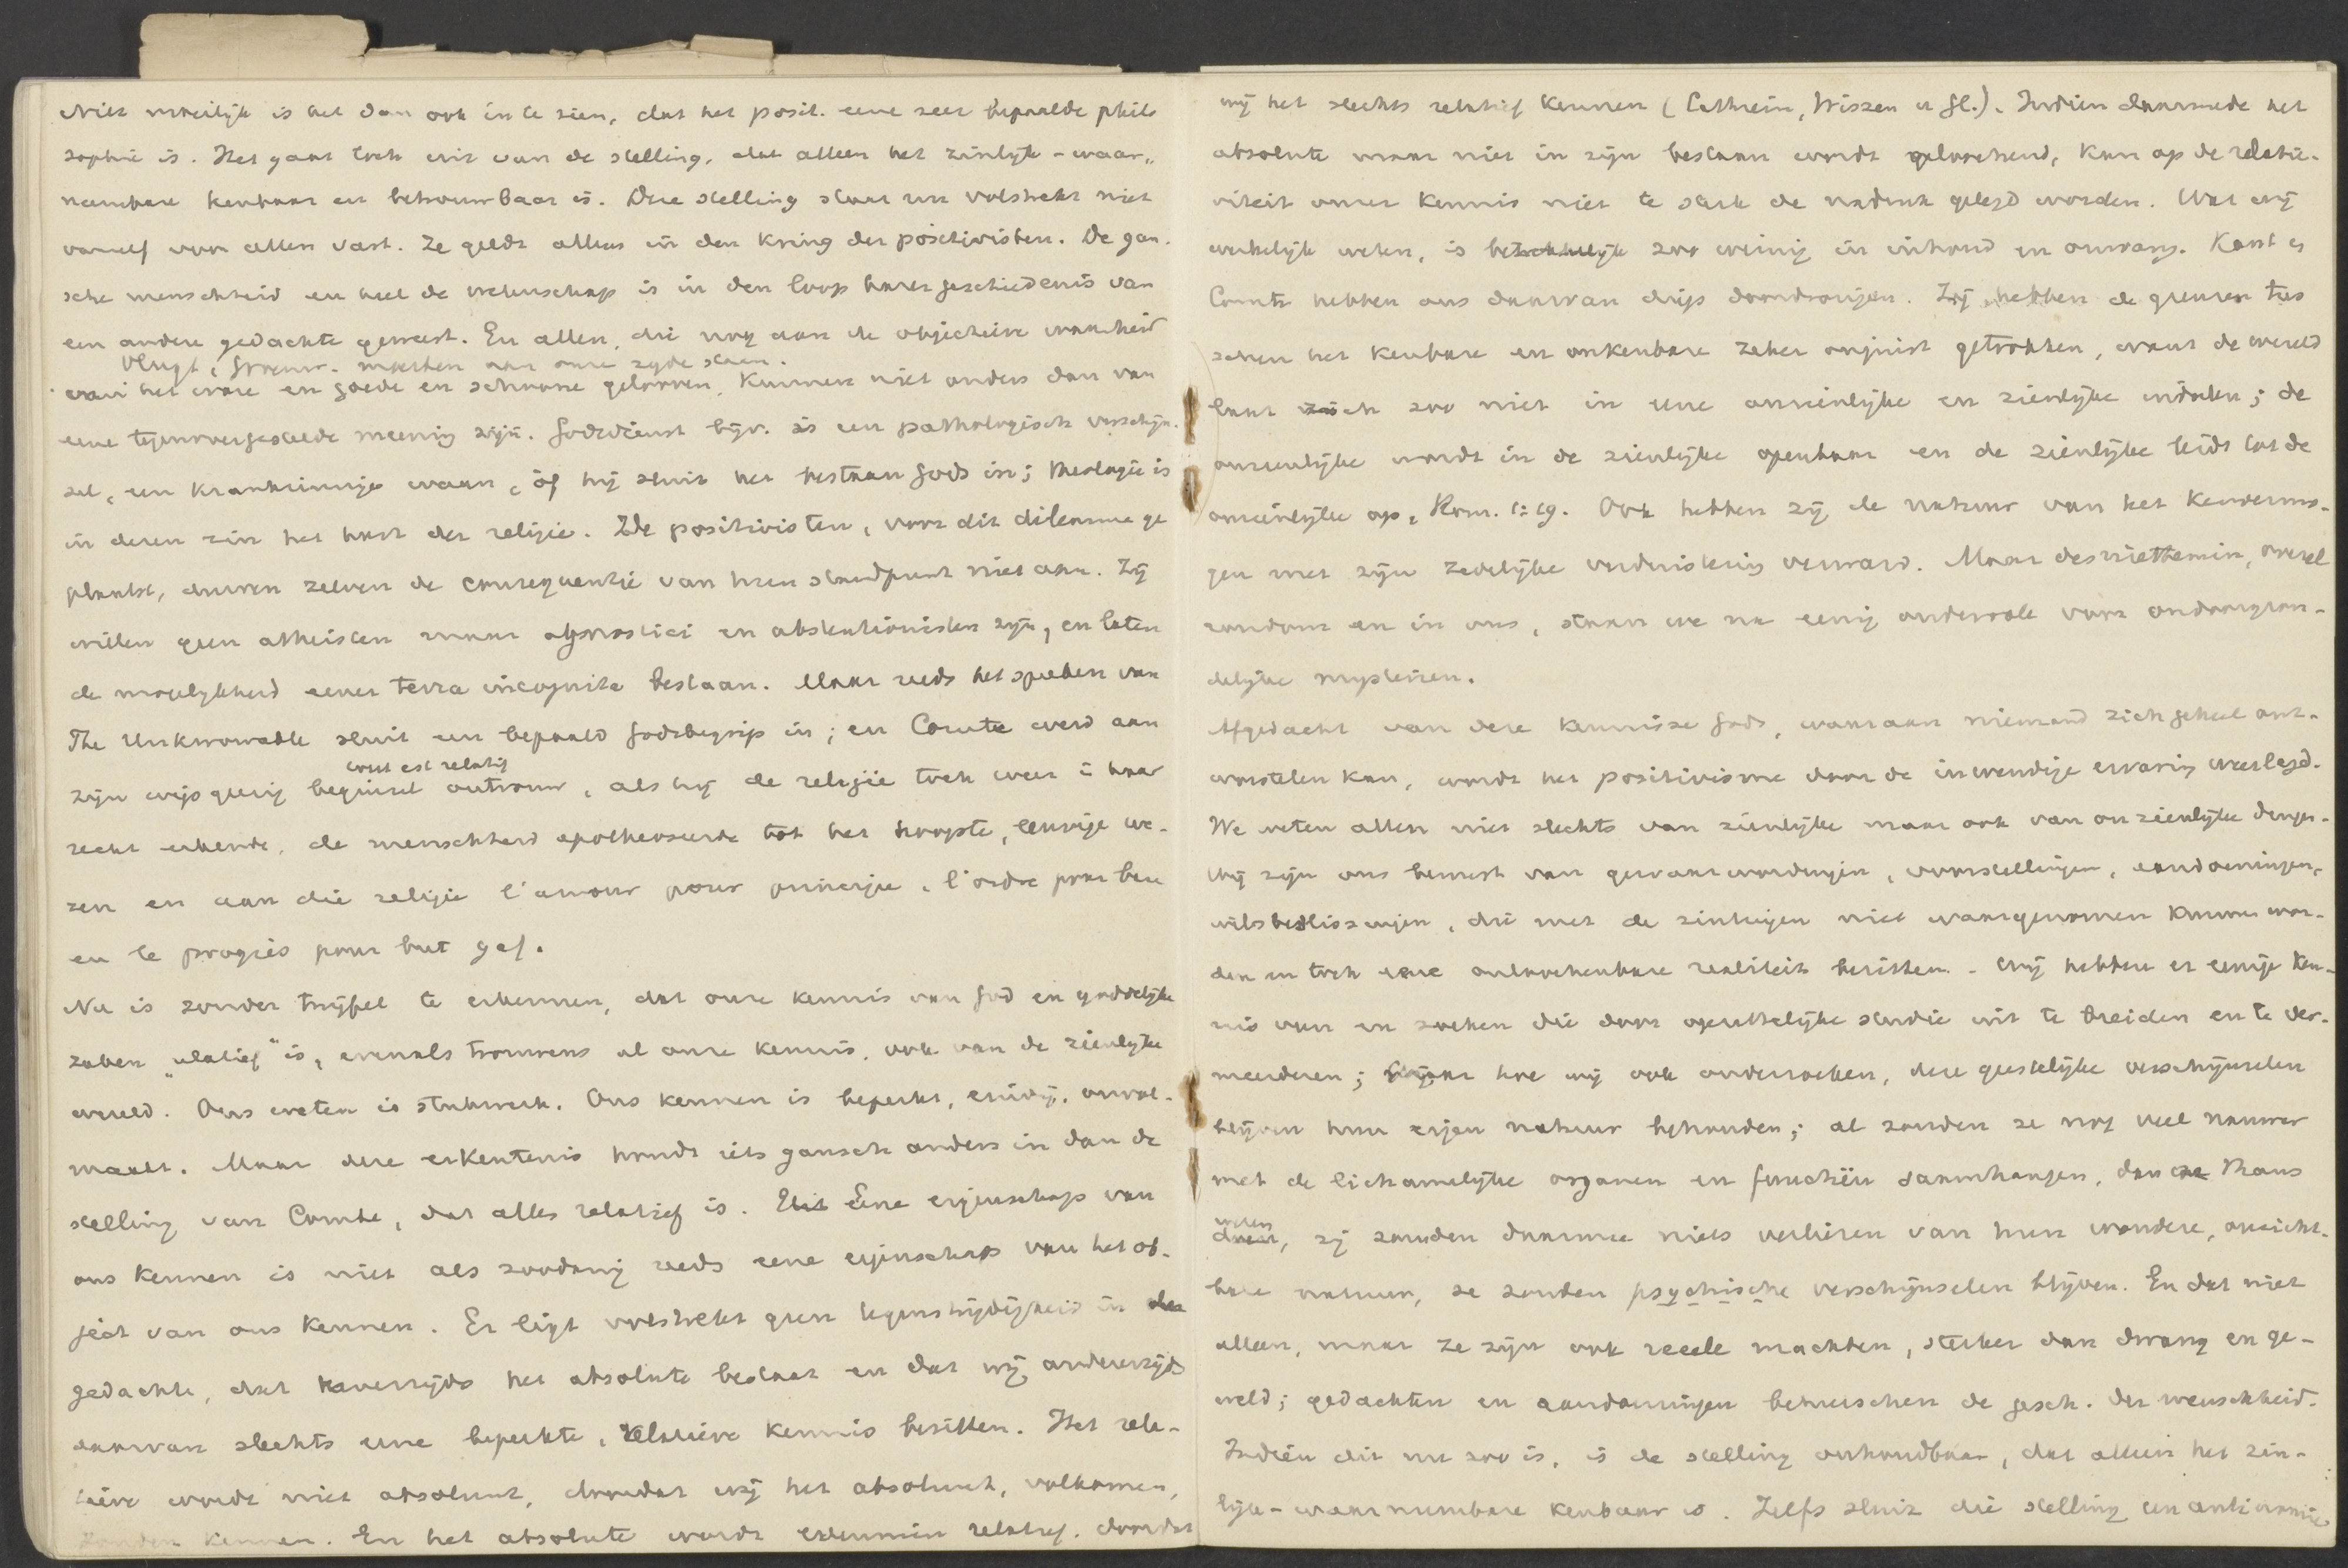 Niet moeilijk is het dan ook in te zien, dat het posit. eene zeer bepaalde philo
sophie is. Het gaat toch uit van de stelling, dat alleen het zinlijk-waar„
neembare kenbaar en betrouwbaar is. Deze stelling staat nu volstrekt niet
vanzelf voor allen vast. Ze geldt alleen in den kring der positivisten. De gan-
sche menschheid en heel de wetenschap is in den loop harer geschiedenis van
een andere gedachte geweest. En allen, die nog aan de objectieve waarheid
moesten aan onze zyde staan.
aan het ware en goede en schoone gelooven, kunnen niet anders dan van
eene tegenovergestelde meening zijn. Godsdienst bijv. is een pathologisch verschijn-
sel, een krankzinnige waan, òf hij sluit het bestaan Gods in; theologie is
in dezen zin het hart der religie. De positivisten, voor dit dilemma ge
plaatst, durven zelven de consequentie van hun standpunt niet aan. Zij
willen geen atheisten maar agnostici en abstentionisten zijn, en laten
de mogelijkheid eener terra incognita bestaan. Maar reeds het spreken van
The Unknowable sluit een bepaald Godsbegrip in; en Comte werd aan
tout est relatif
zijn wijsgeerig beginsel ontrouw, als hij de religie toch weer in haar
recht erkende, de menschheid apotheoseerde tot het hoogste, eenige we-
zen en aan die religie l'amour pour principe, l'ordre pour base
en le progrès pour but gaf.
Nu is zonder twijfel te erkennen, dat onze kennis van God en goddelijke
zaken „relatief" is, evenals trouwens al onze kennis, ook van de zienlijke
wereld. Ons weten is stukwerk. Ons kennen is beperkt, eindig, onvol-
maakt. Maar deze erkentenis houdt iets gansch anders in dan de
stelling van Comte, dat alles relatief is. Eene eigenschap van
ons kennen is niet als zoodanig reeds eene eigenschap van het ob-
ject van ons kennen. Er ligt volstrekt geen tegenstrijdigheid in de
gedachte, dat eenerzijds het absolute bestaat en dat wij anderzijds
daarvan slechts eene beperkte, relatieve kennis bezitten. Het rela-
tieve wordt niet absoluut, doordat wij het absoluut, volkomen,
zouden kennen. En het absolute wordt evenmin relatief, doordat
wij het slechts relatief kennen (Cathrein, Wissen u Gl.). Indien daarmede het
absolute maar niet in zijn bestaan wordt geloochend, kan op de relati-
viteit onzer kennis niet te sterk de nadruk gelegd worden. Wat wij
werkelijk weten, is betrekkelijk zoo weinig in inhoud en omvang. Kant en
Comte hebben ons daarvan diep doordrongen. Zij hebben de grenzen tus
schen het kenbare en onkenbare zeker onjuist getrokken, want de wereld
laat zich zoo niet in eene onzienlijke en zienlijke indeelen; de
onzienlijke wordt in de zienlijke openbaar en de zienlijke leidt tot de
onzienlijke op, Rom. 1:19. Ook hebben zij de natuur van het kenvermo-
gen met zijn zedelijke verduistering verward. Maar desniettemin, overal
rondom en in ons, staan we na eenig onderzoek voor ondoorgron-
delijke mysteriën.
Afgedacht van deze kennisse Gods, waaraan niemand zich geheel ont-
worstelen kan, wordt het positivisme door de inwendige ervaring weerlegd.
We weten allen niet slechts van zienlijke maar ook van onzienlijke dingen.
Wij zijn ons bewust van gewaarwordingen, voorstellingen, aandoeningen,
wilsbeslissingen, die met de zintuigen niet waargenomen kunnen wor-
den en toch eene onloochenbare realiteit bezitten. Wij hebben er eenige ken-
nis van en zoeken die door opzettelijke studie uit te breiden en te ver-
meerderen; maar hoe wij ook onderzoeken, deze geestelijke verschijnselen
blijven hun eigen natuur behouden; al zouden ze nog veel nauwer
met de lichamelijke organen en functiën saamhangen, dan we thans
weten
, zij zouden daarmee niets verliezen van hun wondere, onzicht-
bare natuur, ze zouden psychische verschijnselen blijven. En dat niet
alleen, maar ze zijn ook reeele machten, sterker dan dwang en ge-
weld; gedachten en aandoeningen beheerschen de gesch. der menschheid.
Indien dit nu zoo is, is de stelling onhoudbaar, dat alleen het zin-
lijk-waarneembare kenbaar is. Zelfs sluit die stelling een antinomie